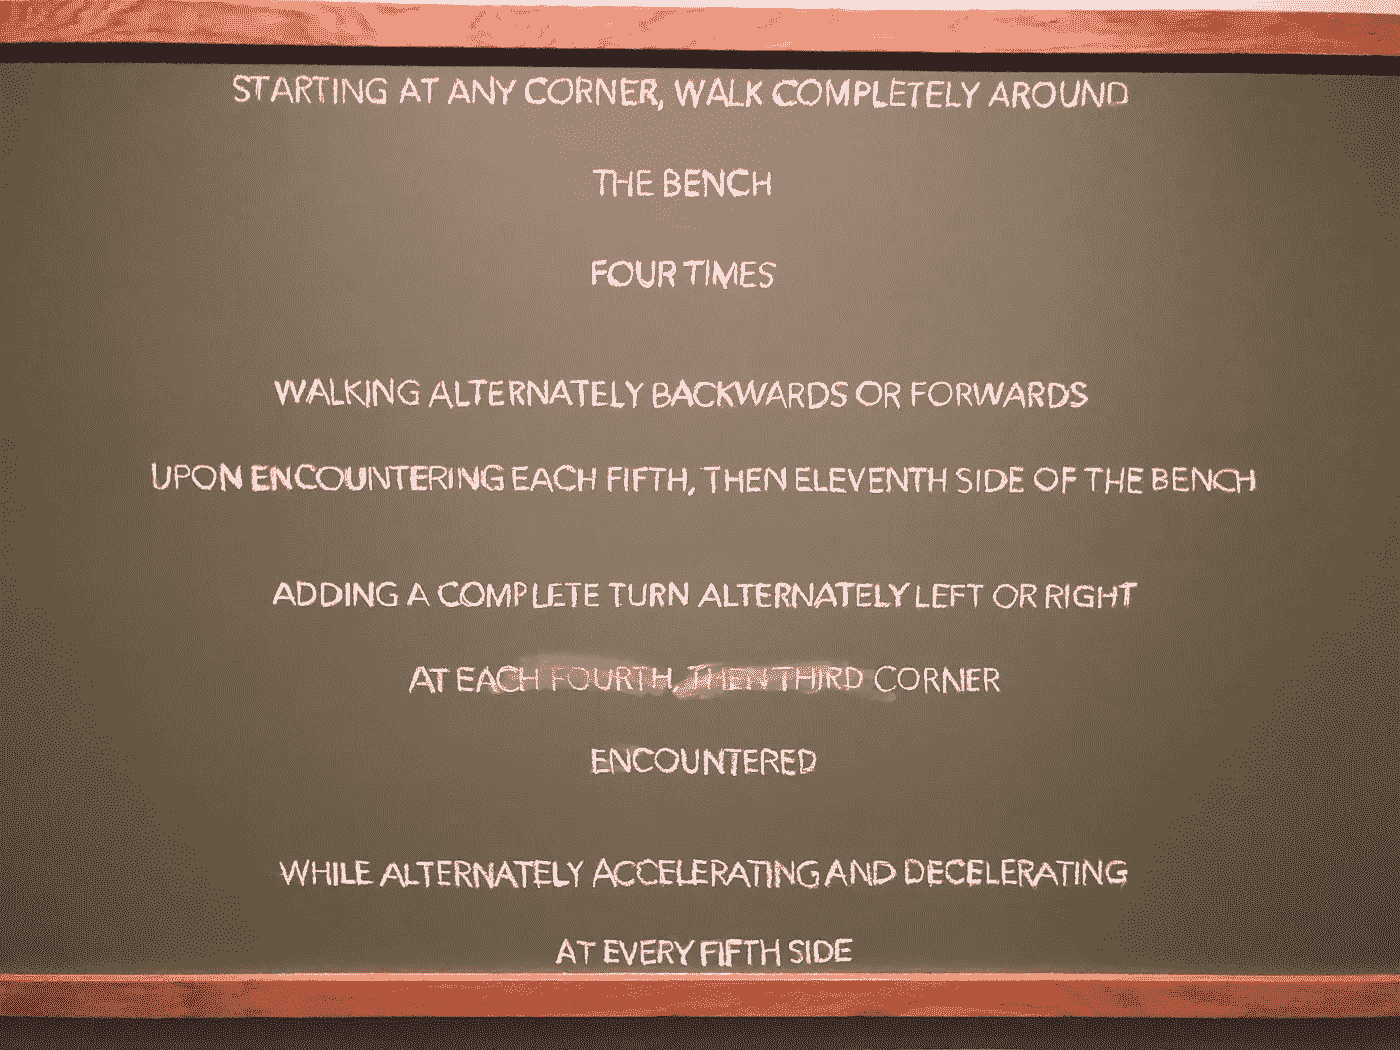 STARTING AT ANY CORNER, WALK COMPLETELY AROUND
THE BENCH
FOUR TIMES
WALKING ALTERNATELY BACKWARDS OR FORWARDS
UPON ENCOUNTERING EACH FIFTH, THEN ELEVENTH SIDE OF THE BENCH
ADDING A COMPLETE TURN ALTERNATELY LEFT OR RIGHT
AT EACH FOURTH, THEN THIRD CORNER
ENCOUNTERED
WHILE ALTERNATELY ACCELERATING AND DECELERATING
AT EVERY FIFTH SIDE